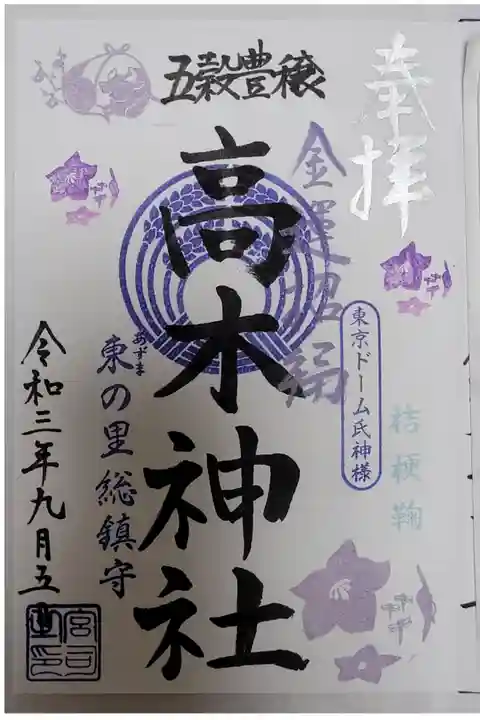 奉拝
五穀豊穣
金運招福
高木神社
東京ドーム氏神様
桔梗鞠
あずま
東の里総鎮守
令和三年九月五
宮司
之印